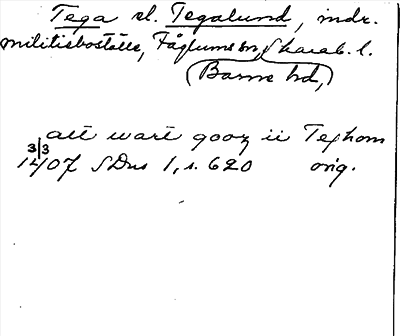 Tega el. Tegalund, indr.
militieboställe, Fåglums sn, Skarab. l.
(Barne hd,)
att wart gooz ii Teghom
3/3
1407 SDns 1, s. 620 orig.